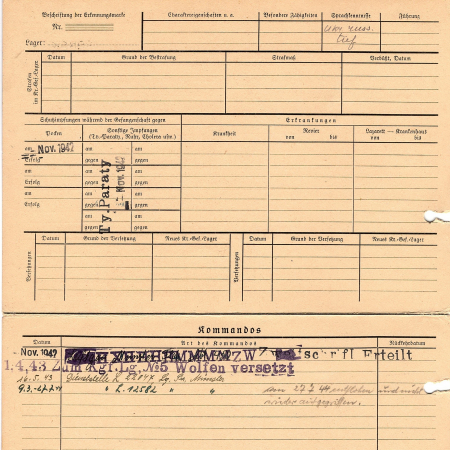 Beschriftung der Erkennungsmarke
Nr.
Lager:
Charaktereigenschaften u. a.
Besondere Fähigkeiten
Sprachkenntnisse
Führung
Strafen im Kr.-Gef.-Lager
Datum
Grund der Bestrafung
Strafmaß
Verbüßt, Datum
Schutzimpfungen während der Gefangenschaft gegen
Erkrankungen
Pocken
Sonstige Impfungen
(Ty.-Paraty., Ruhr, Cholera usw.)
Krankheit
Revier
von bis
Lazarett — Krankenhaus
von bis
am Nov. 1942
Erfolg
am
Erfolg
am
Erfolg
am
Erfolg
am am
gegen gegen
am am
gegen gegen
am am
gegen gegen
am am
gegen gegen
am am
gegen gegen
Ty. Paraty
Nov. 1942
Versetzungen
Datum
Grund der Versetzung
Neues Kr.-Gef.-Lager
Versetzungen
Datum
Grund der Versetzung
Neues Kr.-Gef.-Lager
Kommandos
Datum
Art des Kommandos
Rückkehrdatum
Nov. 1942
Erteilt
1.4.43 Zum Kgf. Lg. №5 Wolfen versetzt
26.5.43 Dienststelle L
" L. 12582 " " von 27.7.44 entflohen und nicht
wieder aufgegriffen.